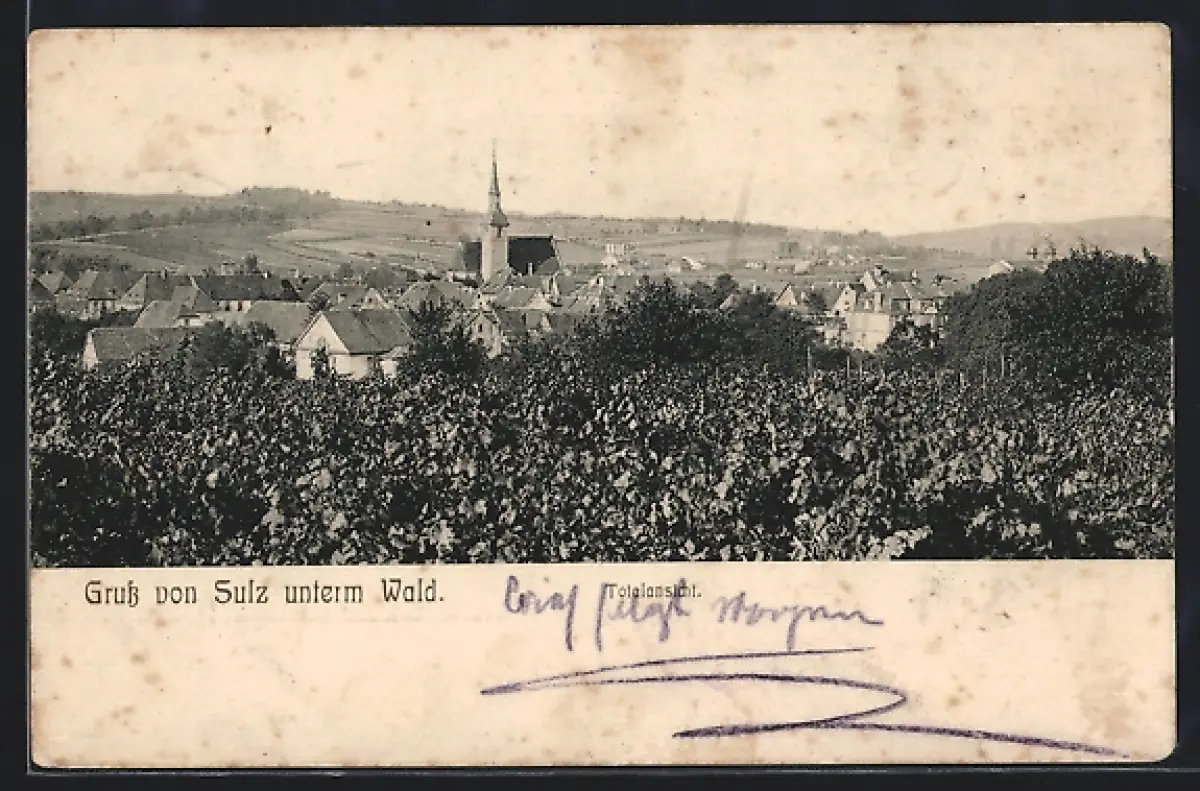 Gruß von Sulz unterm Wald.
Totalansicht.
Brief folgt Morgen